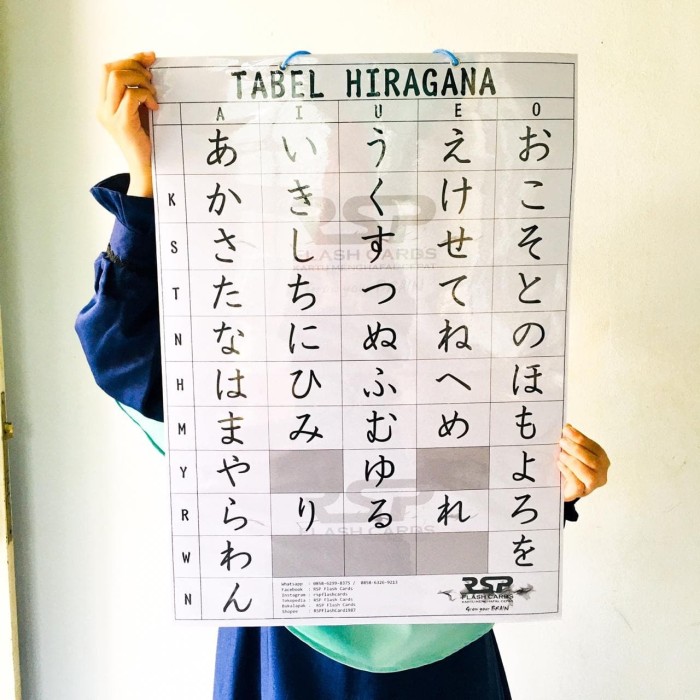 TABEL HIRAGANA
A I U E O
あ い う え お
K か き く け こ
S さ し す せ そ
T た ち つ て と
N な に ぬ ね の
H は ひ ふ へ ほ
M ま み む め も
Y や ゆ よ
R ら り る れ ろ
W わ を
N ん
Whatsapp : 0858-6239-8375 / 0858-6326-9213
Facebook : RSP Flash Cards
Instagram : rspflashcards
Tokopedia : RSP Flash Cards
Bukalapak : RSP Flash Cards
Shopee : RSPFlashCard1987
RSP
FLASH CARDS
Grow your BRAIN
RSP
FLASH CARDS
RSP
FLASH CARDS